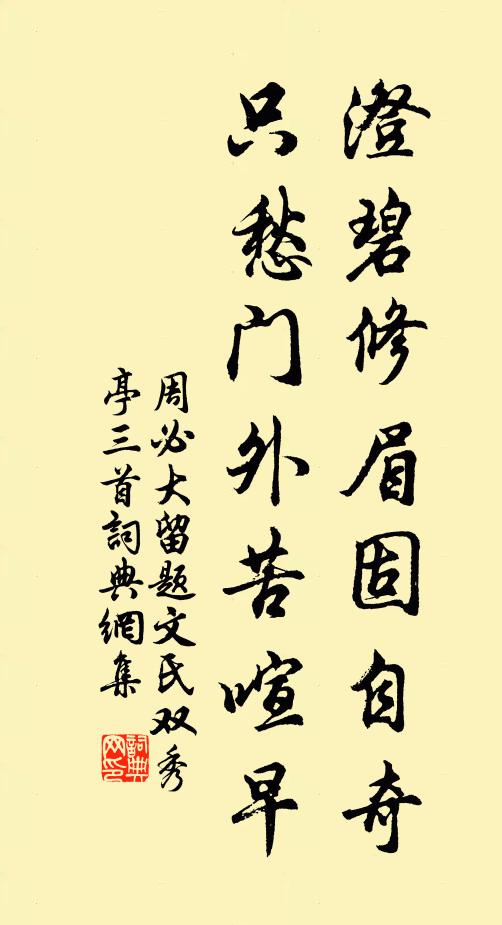 澄碧修眉固自奇
只愁门外苦喧早
周必大留题文氏双秀
亭三首詞典網集
詞典網印